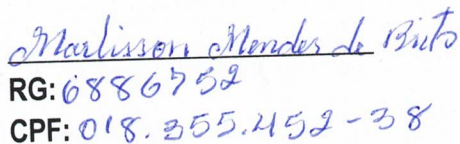 Marlisson Mendes de Brito
RG: 6886752
CPF: 018.355.452-38